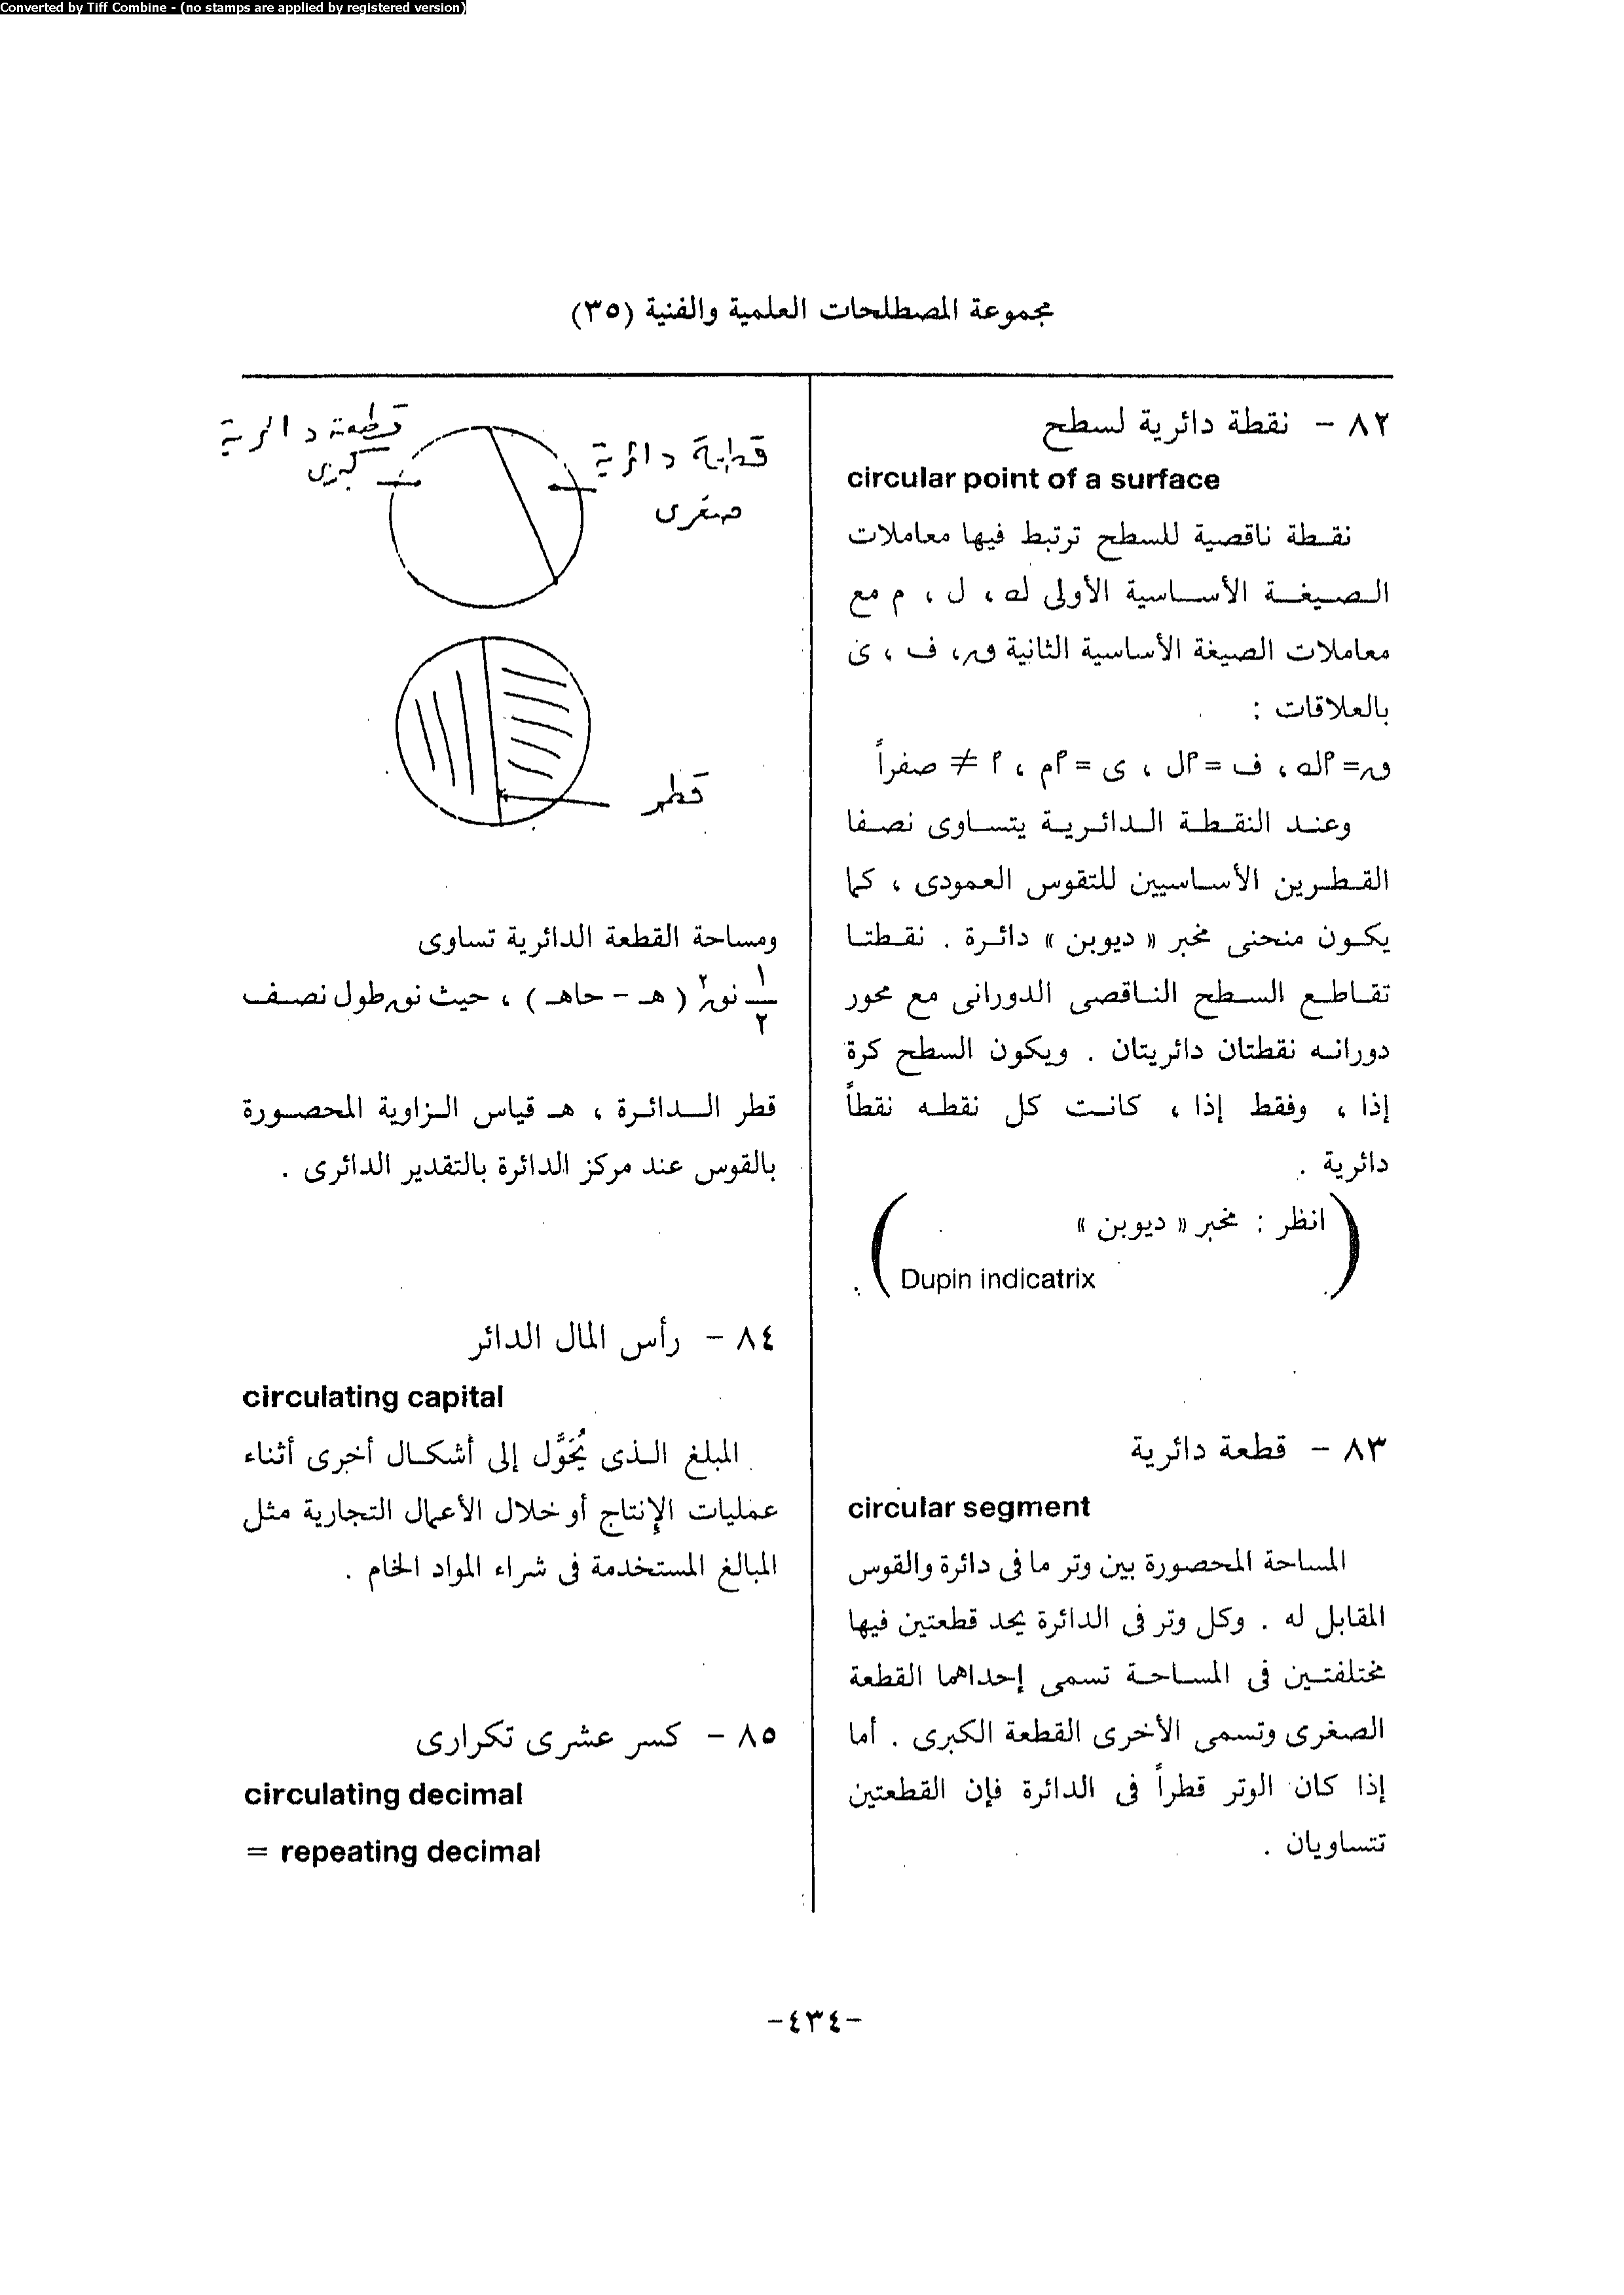 Converted by Tiff Combine - (no stamps are applied by registered version)
مجموعة المصطلحات العلمية والفنية (٣٥)
٨٢ - نقطة دائرية لسطح
circular point of a surface
نقطة ناقصية للسطح ترتبط فيها معاملات
الصيغة الأساسية الأولى له ، ل ، م مع
معاملات الصيغة الأساسية الثانية ق ، ف ، ى
بالعلاقات :
ق = أله ، ف = أل ، ى = أم ، أ ≠ صفراً
وعند النقطة الدائرية يتساوى نصفا
القطرين الأساسيين للتقوس العمودى ، كما
يكون منحنى مخبر « ديوبن » دائرة . نقطتا
تقاطع السطح الناقصى الدورانى مع محور
دورانه نقطتان دائريتان . ويكون السطح كرة
إذا ، وفقط إذا ، كانت كل نقطه نقطاً
دائرية .
( انظر : مخبر « ديوبن »
Dupin indicatrix ) .
٨٣ - قطعة دائرية
circular segment
المساحة المحصورة بين وتر ما فى دائرة والقوس
المقابل له . وكل وتر فى الدائرة يحد قطعتين فيها
مختلفتين فى المساحة تسمى إحداهما القطعة
الصغرى وتسمى الأخرى القطعة الكبرى . أما
إذا كان الوتر قطراً فى الدائرة فإن القطعتين
تتساويان .
قطعة دائرية
صغرى
قطعة دائرية
كبرى
قطر
ومساحة القطعة الدائرية تساوى
١/٢ نق٢ ( هـ - حاهـ ) ، حيث نق طول نصف
قطر الدائرة ، هـ قياس الزاوية المحصورة
بالقوس عند مركز الدائرة بالتقدير الدائرى .
٨٤ - رأس المال الدائر
circulating capital
المبلغ الذى يُحَوَّل إلى أشكال أخرى أثناء
عمليات الإنتاج أو خلال الأعمال التجارية مثل
المبالغ المستخدمة فى شراء المواد الخام .
٨٥ - كسر عشرى تكرارى
circulating decimal
= repeating decimal
-٤٣٤-